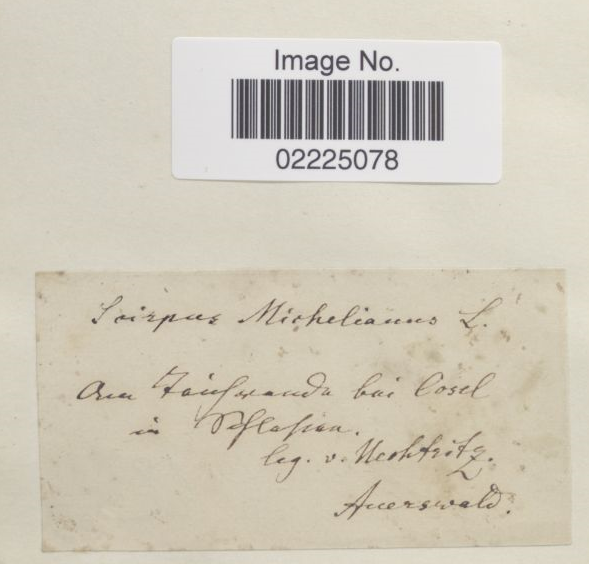 Image No.
02225078
Scirpus Michelianus L.
Am Teichrande bei Cosel
in Schlesien.
leg. v. Uechtritz.
Auerswald.